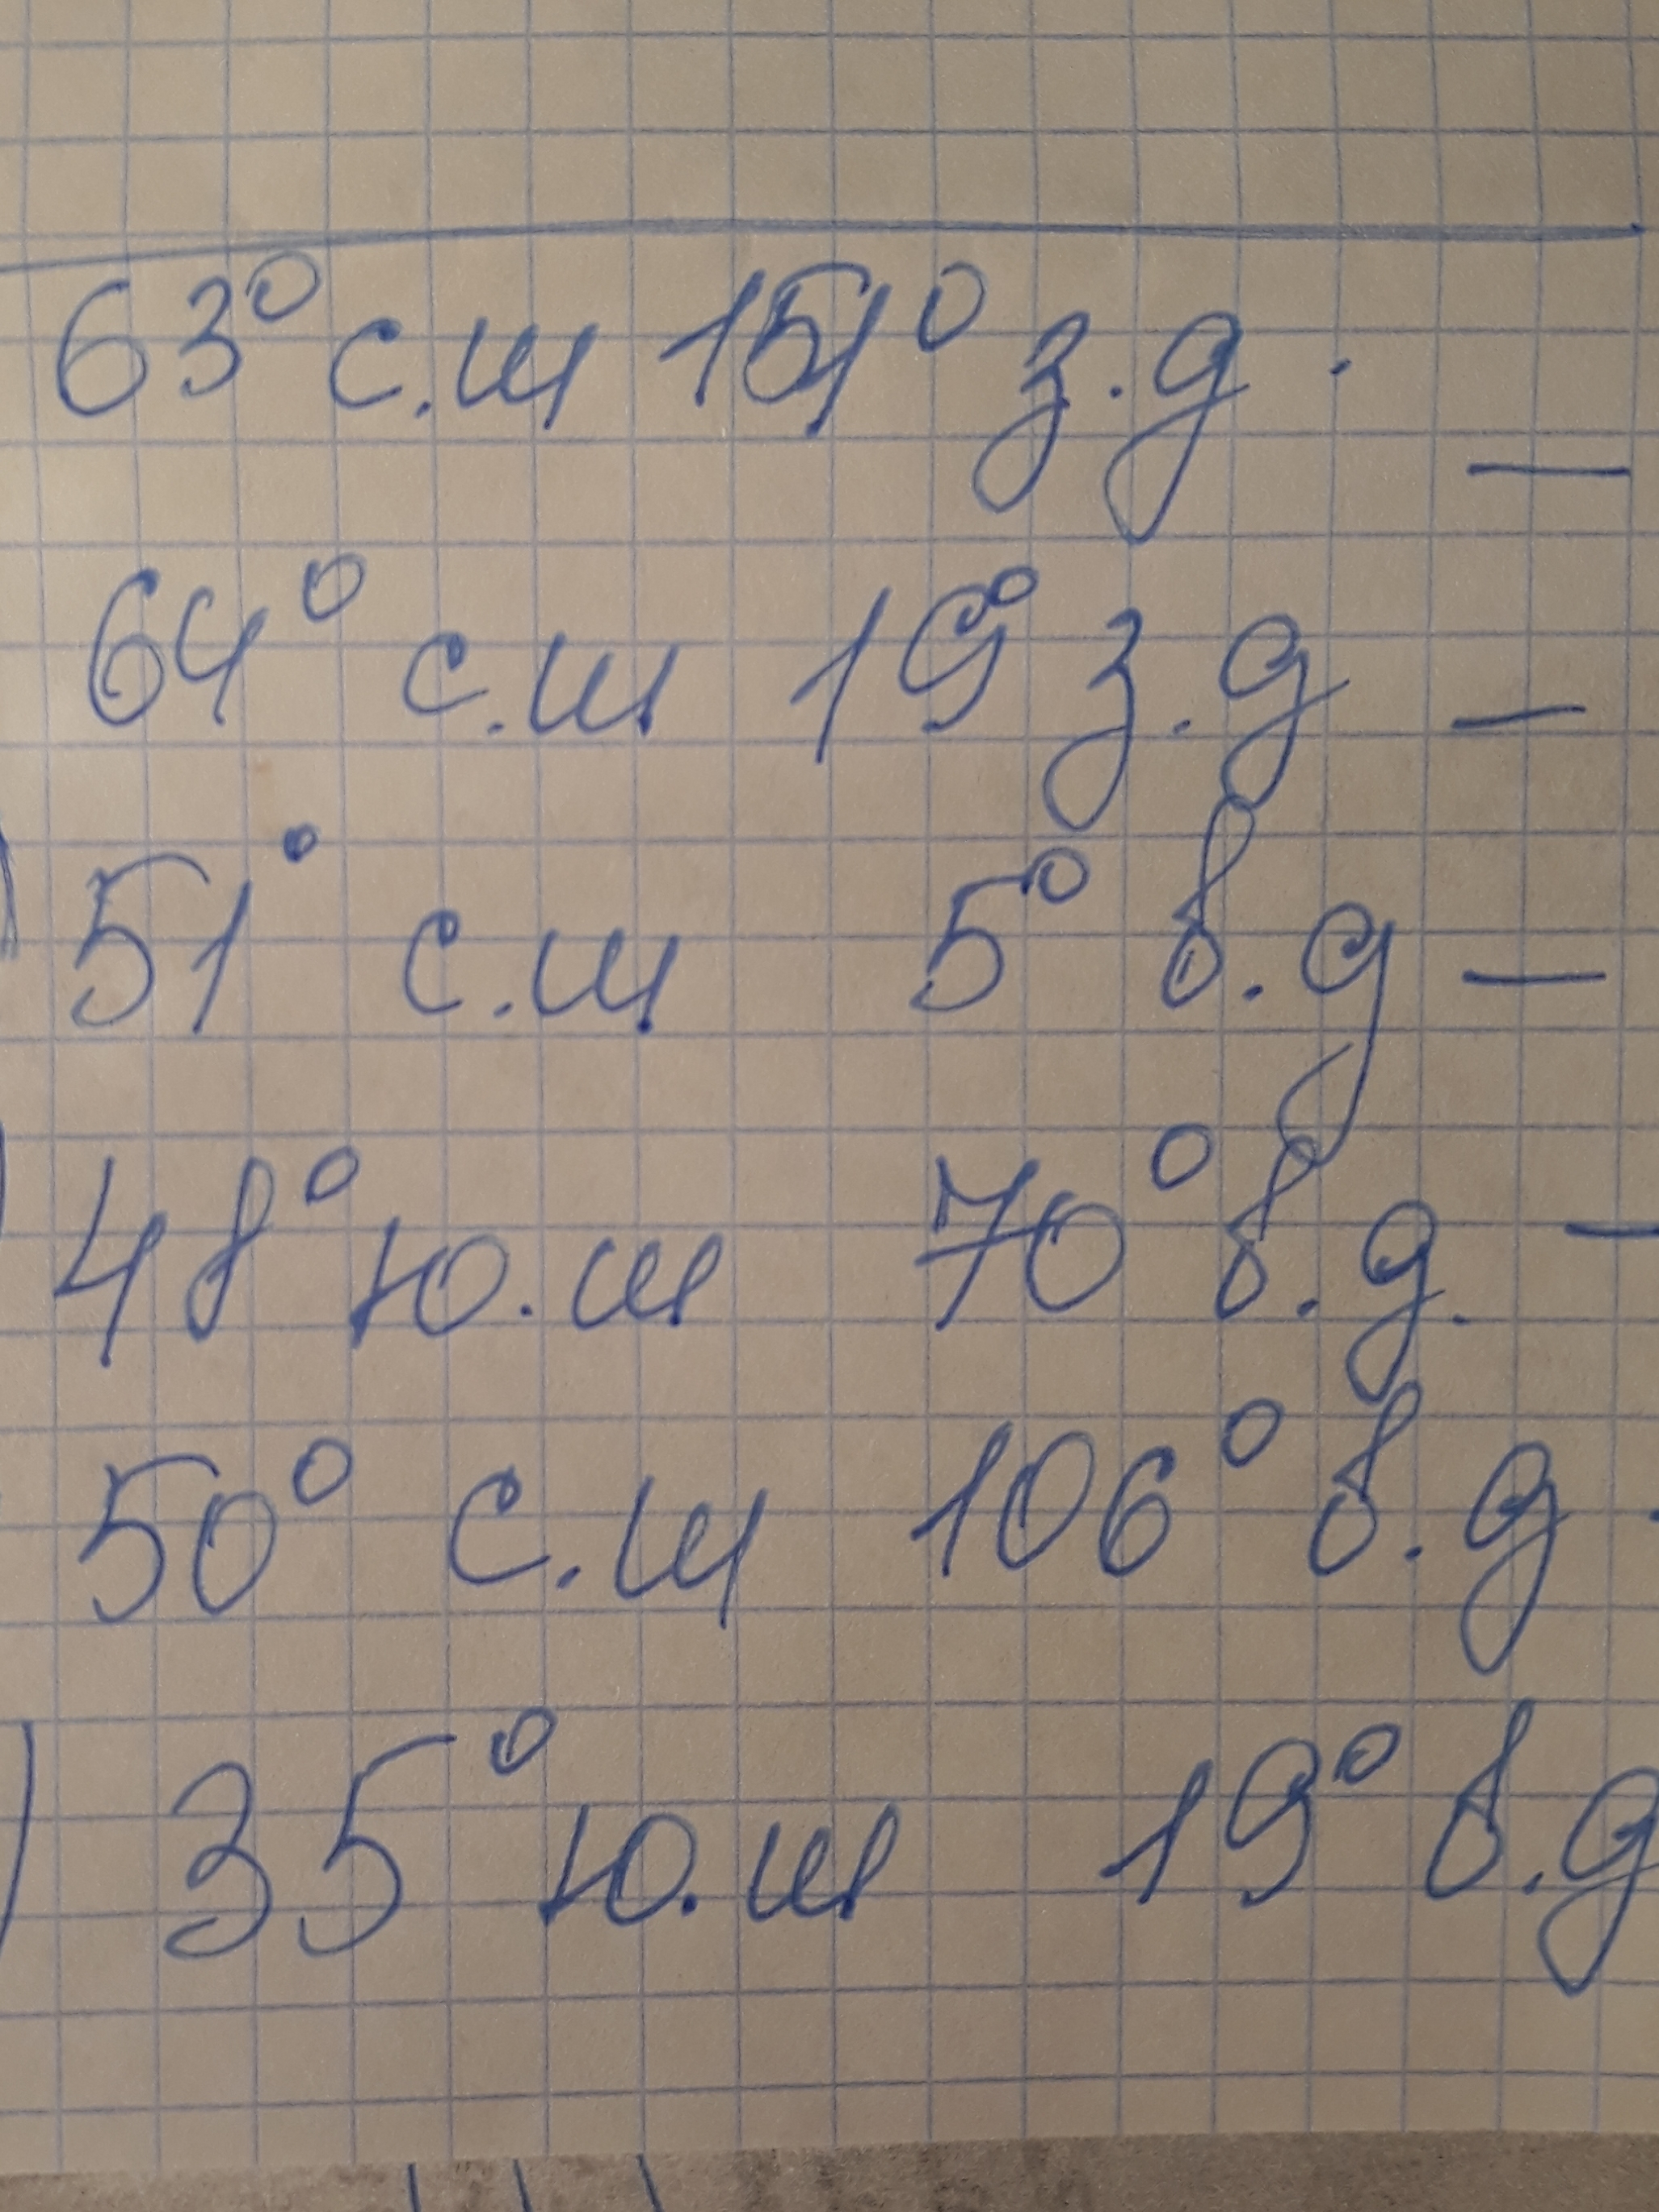 63° с.ш 151° з.д. —
64° с.ш 19° з.д —
51° с.ш 5° в.д —
48° ю.ш 70° в.д. —
50° с.ш 106° в.д -
35° ю.ш 19° в.д